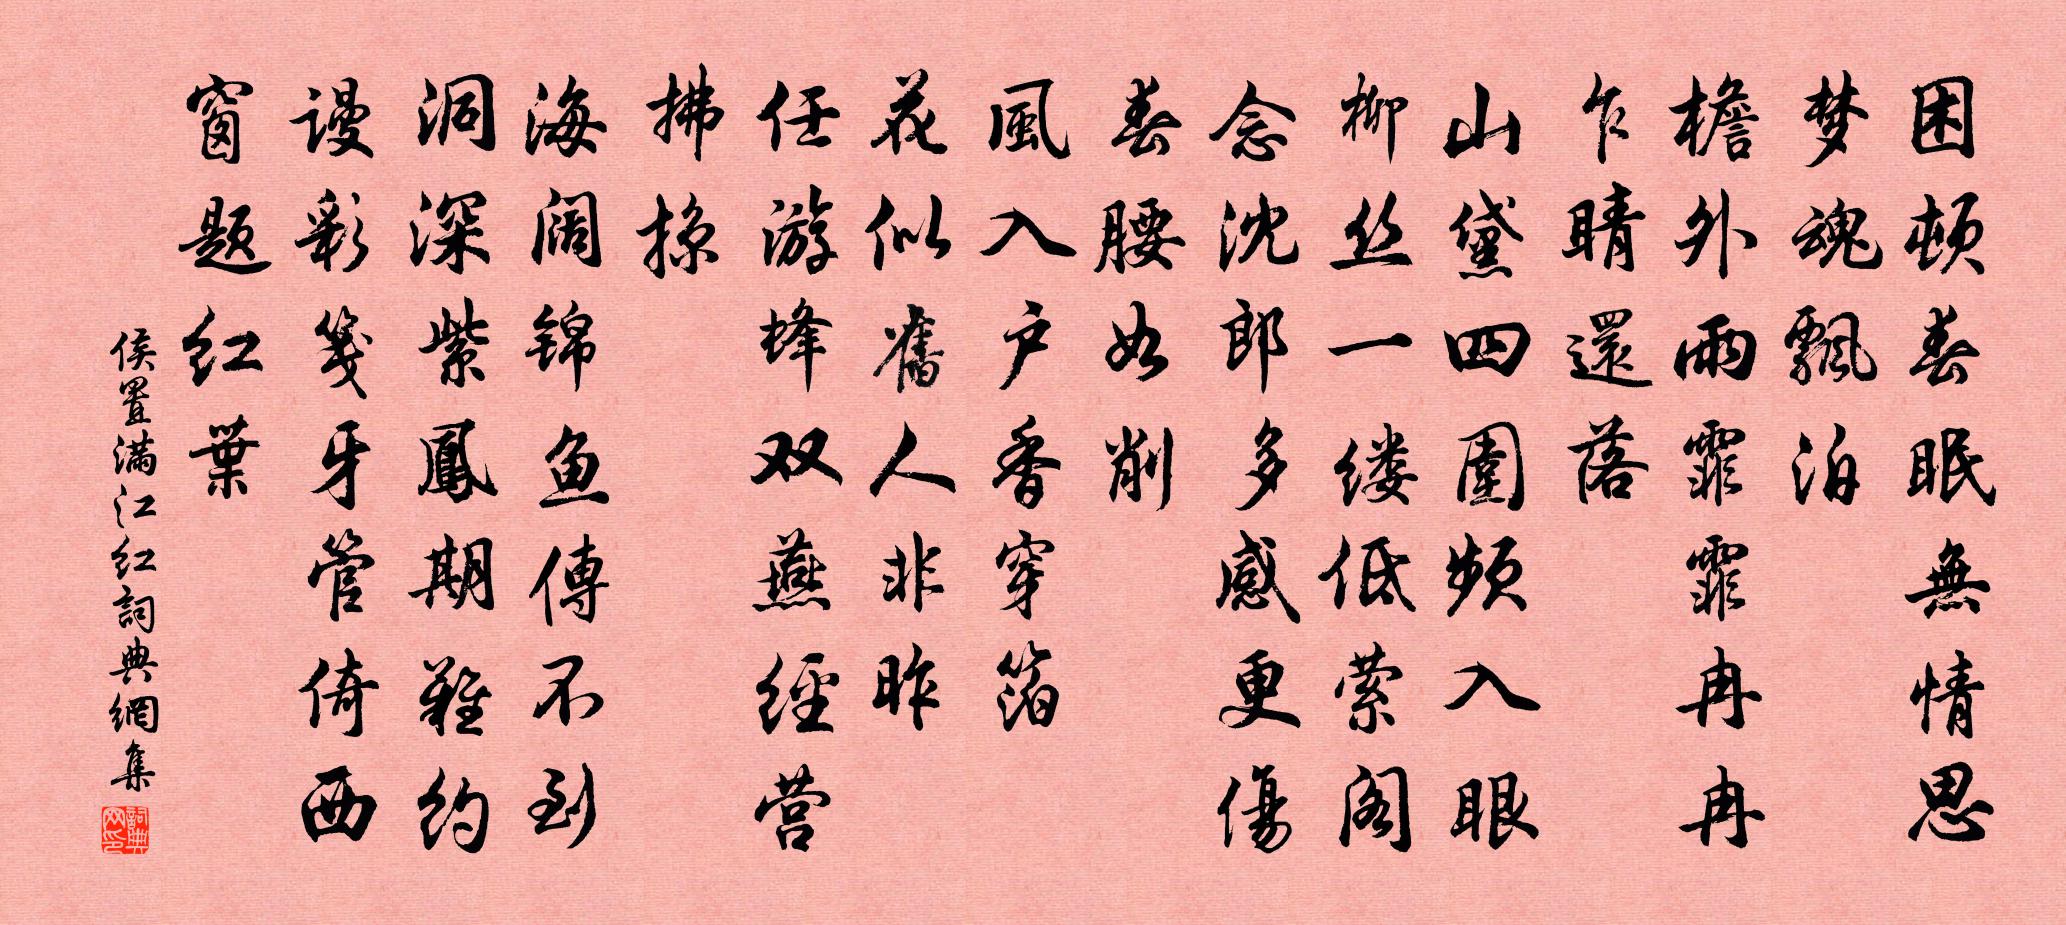 困頓春眠無情思
梦魂飄泊
檐外雨霏霏冉冉
乍晴還落
山黛四圍頻入眼
柳丝一缕低萦阁
念沈郎多感更傷
春腰如削
風入户香穿箔
花似舊人非昨
任游蜂双燕经营
拂掠
海阔锦鱼傳不到
洞深紫鳳期難约
谩彩笺牙管倚西
窗题红葉
侯置滿江红詞典網集
詞典网印